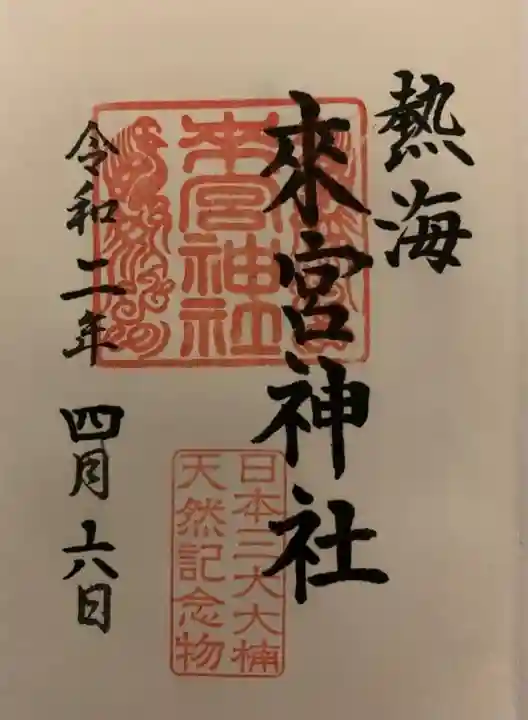 熱海
來宮神社
來宮神社
日本三大大楠
天然記念物
令和二年四月十六日